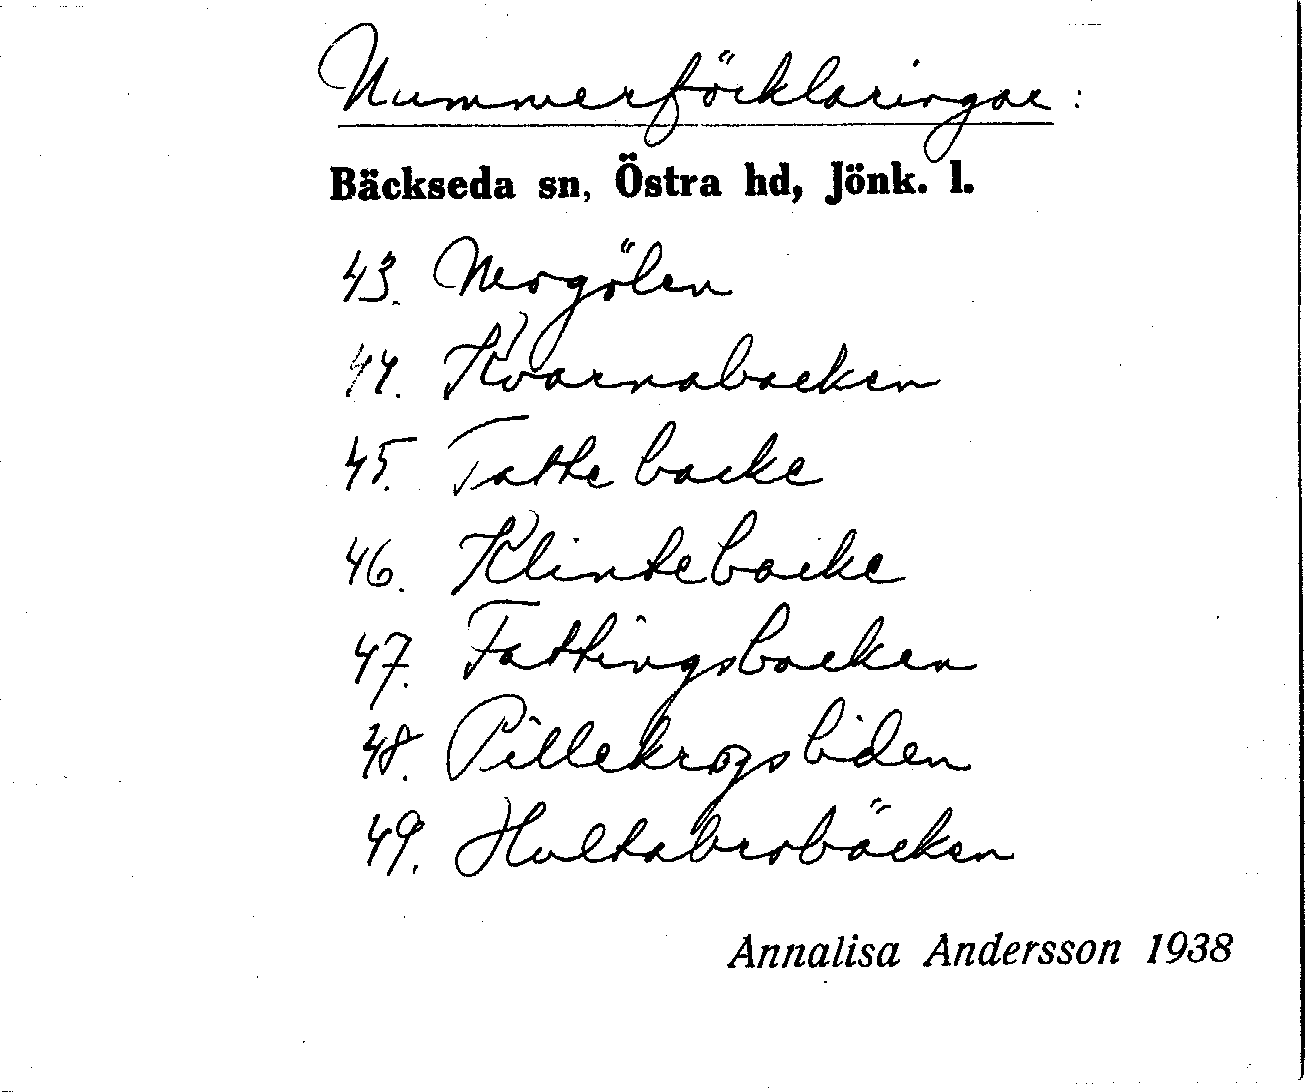 Nummerförklaringar:
Bäckseda sn, Östra hd, Jönk. l.
43. Mogölen
44. Kvarnabacken
45. Tattebacke
46. Klintebacke
47. Fattingsbacken
48. Pillekrogsliden
49. Hultabrobäcken
Annalisa Andersson 1938